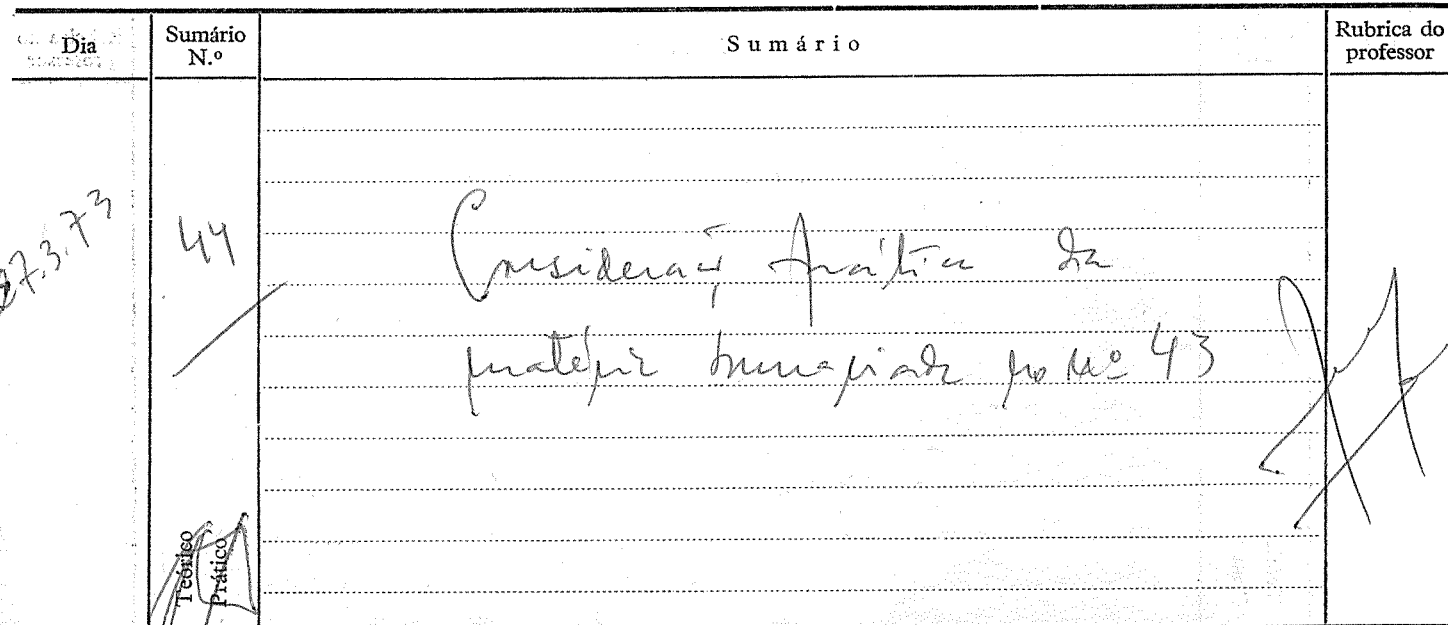 Dia
Sumário N.º
Sumário
Rubrica do professor
27.3.73
44
Consideração prática da
matéria sumariada no nº 43
Teórico
Prático